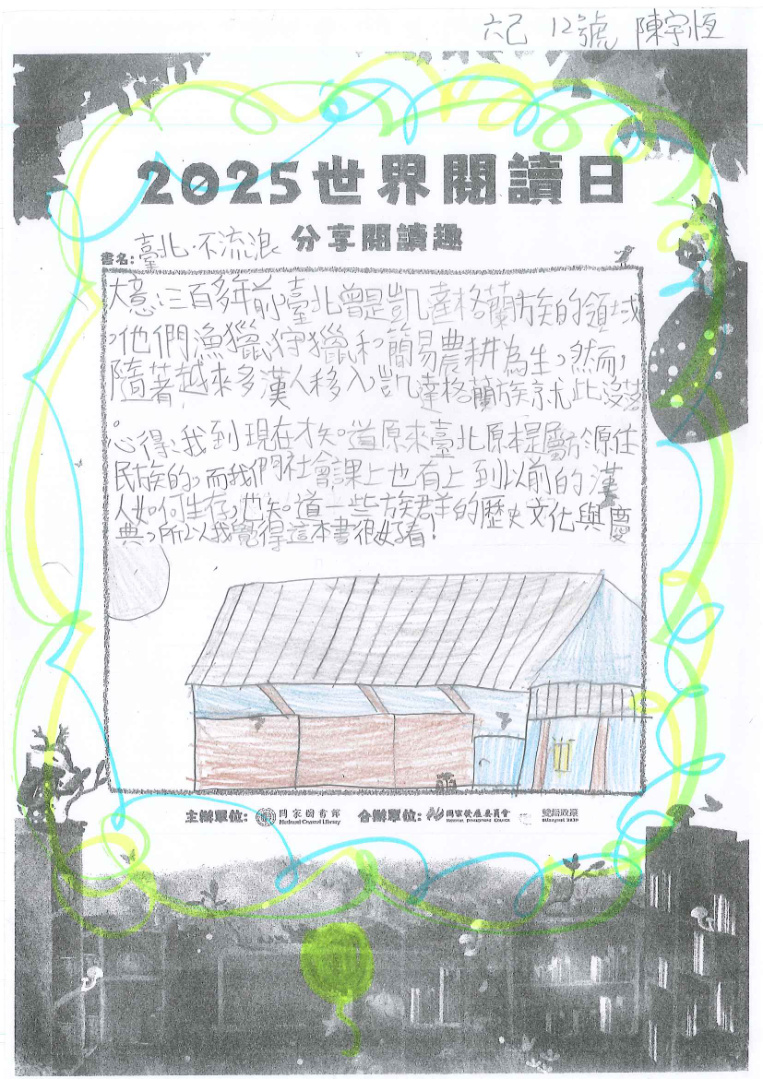 六己 12號 陳宇恆
2025世界閱讀日
分享閱讀趣
書名:臺北·不流浪
大意:三百多年前,臺北曾是凱達格蘭族的領域
,他們漁獵、狩獵和簡易農耕為生,然而,
隨著越來多漢人移入,凱達格蘭族就此沒落
。
心得:我到現在才知道原來臺北原本是屬於原住
民族的。而我們社會課上也有上到以前的漢
人如何生存,也知道一些族羊的歷史文化與慶
典,所以我覺得這本書很好看!
主辦單位: 國家圖書館 合辦單位: 國家發展委員會 雙語政策
National Central Library